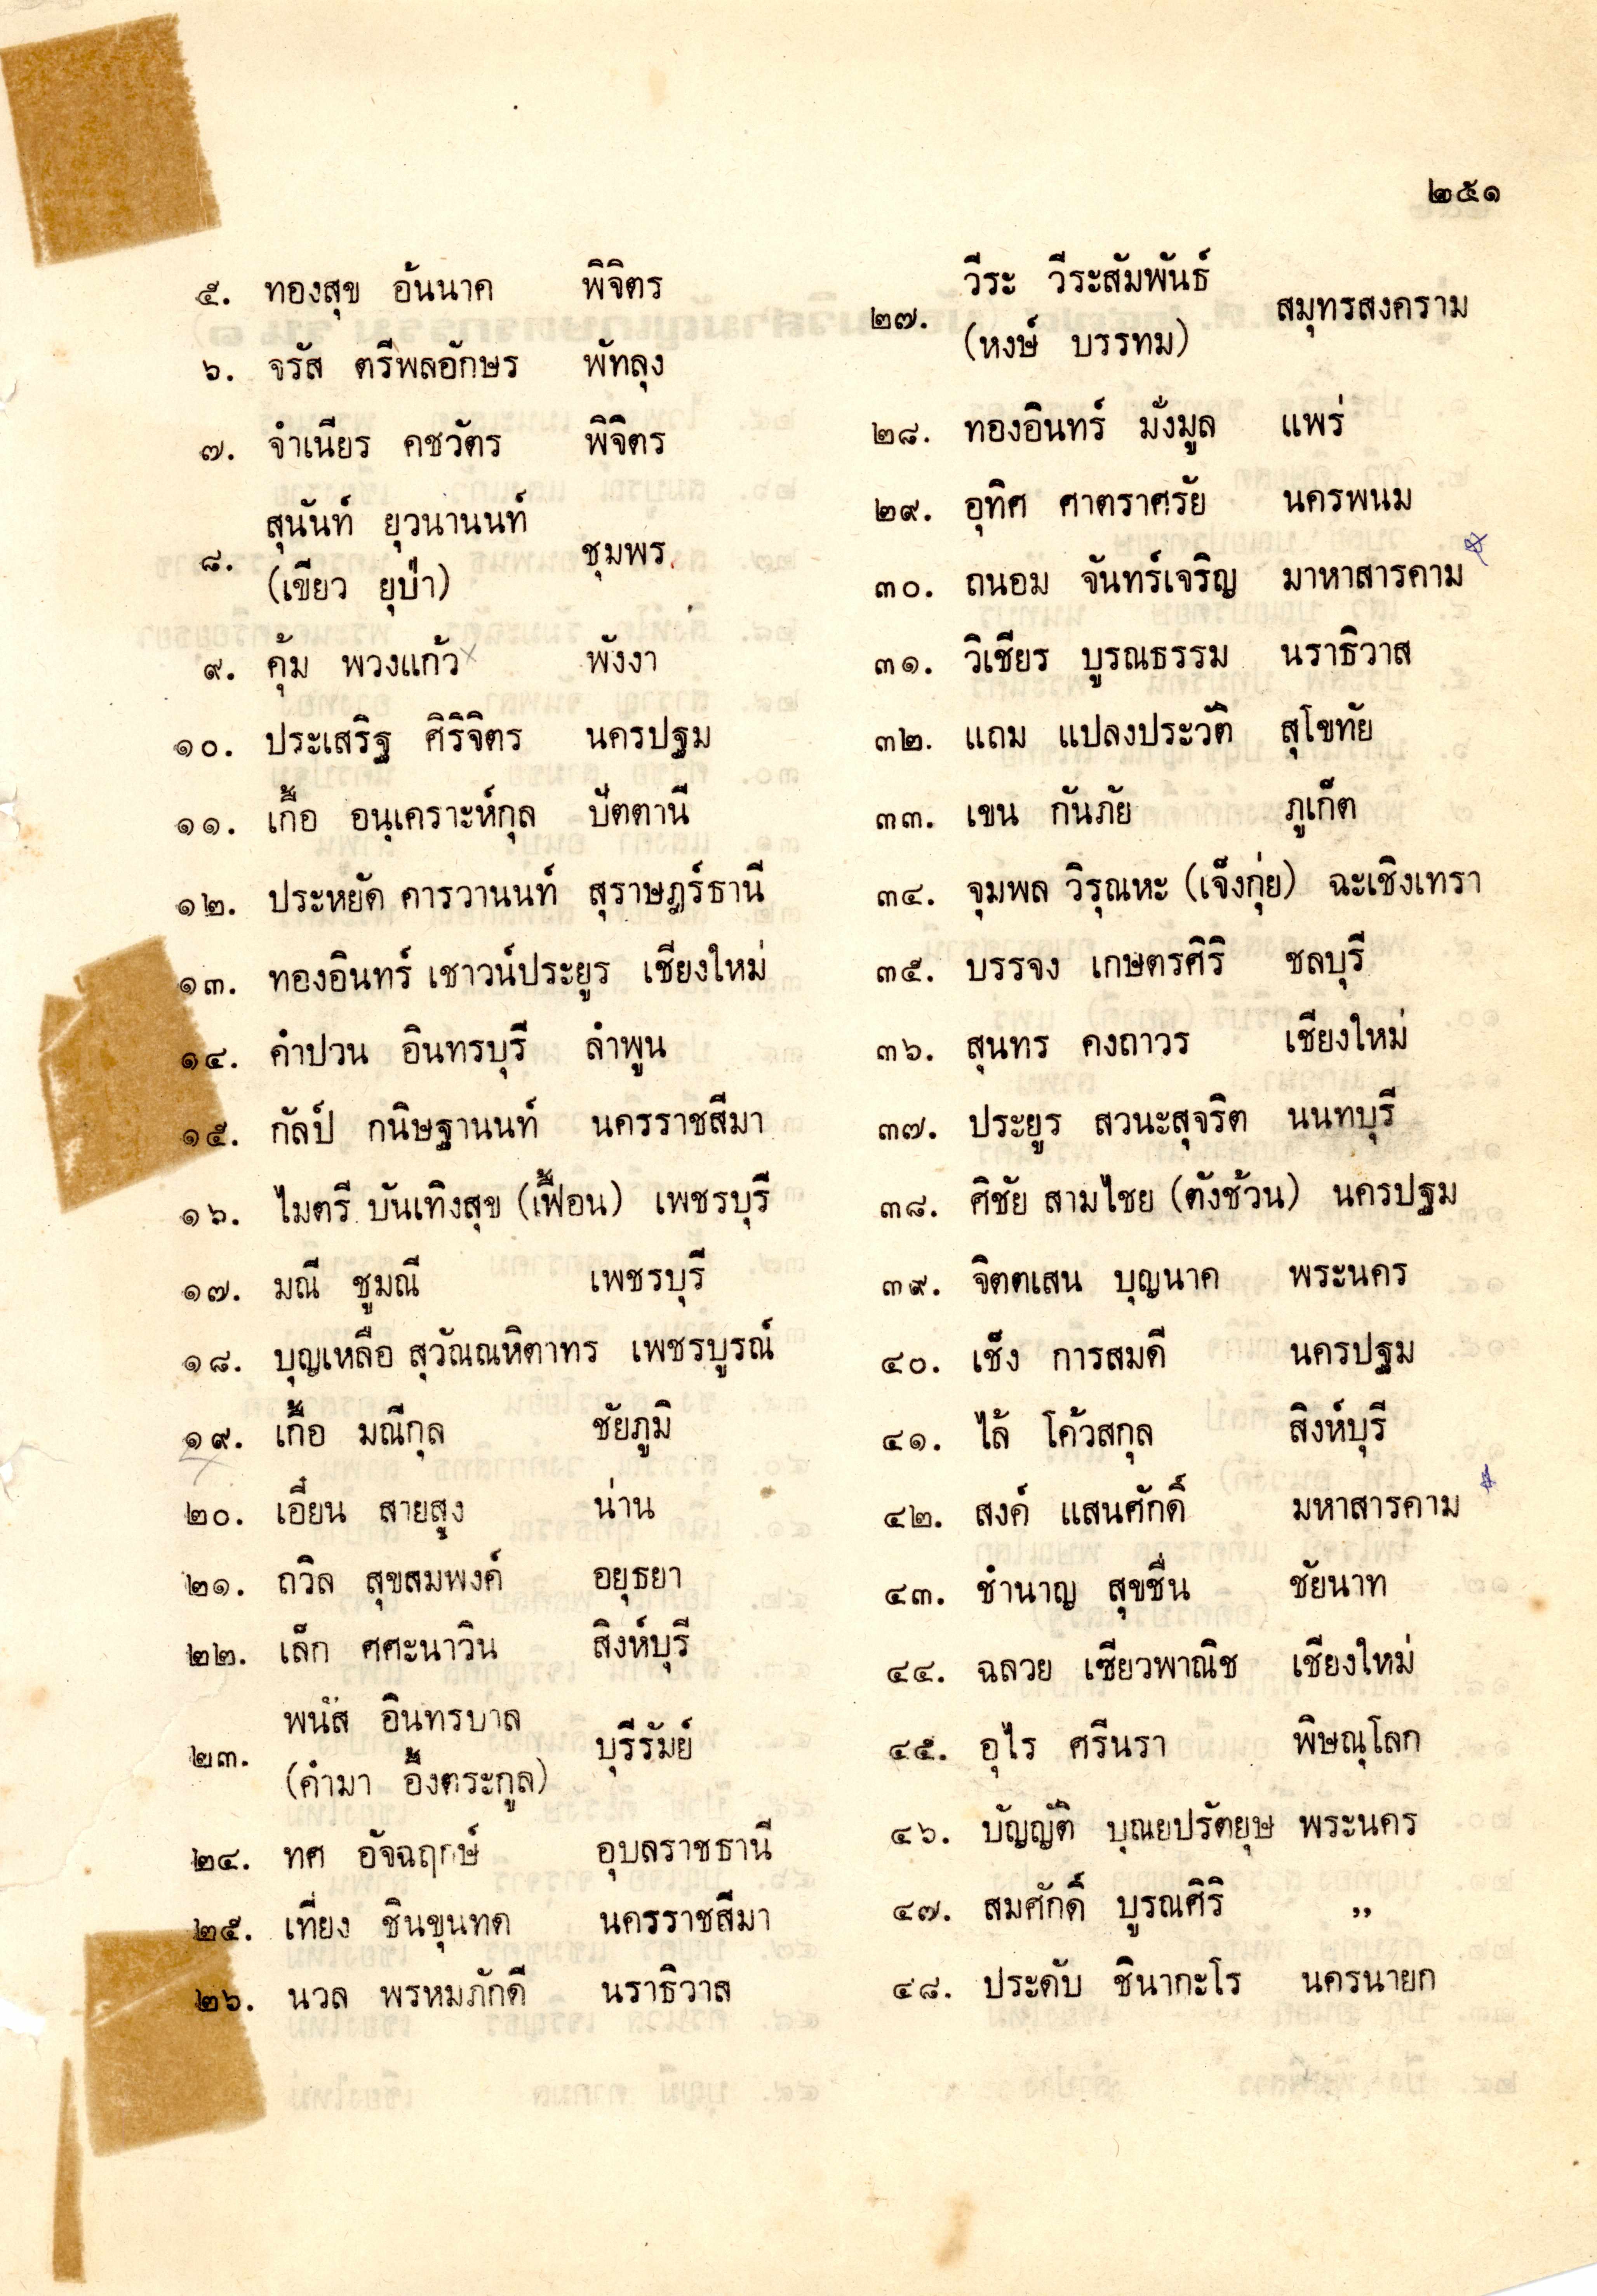 ๒๕๑
๕. ทองสุข อ้นนาค พิจิตร
๖. จรัส ตรีพลอักษร พัทลุง
๗. จำเนียร คชวัตร พิจิตร
สุนันท์ ยุวนานนท์
๘. ชุมพร
(เขียว ยุป่า)
๙. คุ้ม พวงแก้ว พังงา
๑๐. ประเสริฐ ศิริจิตร นครปฐม
๑๑. เกื้อ อนุเคราะห์กุล ปัตตานี
๑๒. ประหยัด คารวานนท์ สุราษฎร์ธานี
๑๓. ทองอินทร์ เชาวน์ประยูร เชียงใหม่
๑๔. คำปวน อินทรบุรี ลำพูน
๑๕. กัลป์ กนิษฐานนท์ นครราชสีมา
๑๖. ไมตรี บันเทิงสุข (เฟื้อน) เพชรบุรี
๑๗. มณี ชูมณี เพชรบุรี
๑๘. บุญเหลือ สุวัณณหิตาทร เพชรบูรณ์
๑๙. เกื้อ มณีกุล ชัยภูมิ
๒๐. เอี๋ยน สายสูง น่าน
๒๑. ถวิล สุขสมพงค์ อยุธยา
๒๒. เล็ก ศศะนาวิน สิงห์บุรี
พนัส อินทรบาล
๒๓. บุรีรัมย์
(คำมา อึ้งตระกูล)
๒๔. ทศ อัจฉฤกษ์ อุบลราชธานี
๒๕. เที่ยง ชินขุนทด นครราชสีมา
๒๖. นวล พรหมภักดี นราธิวาส
วีระ วีระสัมพันธ์
๒๗. สมุทรสงคราม
(หงษ์ บรรทม)
๒๘. ทองอินทร์ มั่งมูล แพร่
๒๙. อุทิศ ศาตราศรัย นครพนม
๓๐. ถนอม จันทร์เจริญ มาหาสารคาม
๓๑. วิเชียร บูรณธรรม นราธิวาส
๓๒. แถม แปลงประวัติ สุโขทัย
๓๓. เขน กันภัย ภูเก็ต
๓๔. จุมพล วิรุณหะ (เจ็งกุ่ย) ฉะเชิงเทรา
๓๕. บรรจง เกษตรศิริ ชลบุรี
๓๖. สุนทร คงถาวร เชียงใหม่
๓๗. ประยูร สวนะสุจริต นนทบุรี
๓๘. ศิชัย สามไชย (ตังช้วน) นครปฐม
๓๙. จิตตเสน บุญนาค พระนคร
๔๐. เช็ง การสมดี นครปฐม
๔๑. ไล้ โค้วสกุล สิงห์บุรี
๔๒. สงค์ แสนศักดิ์ มหาสารคาม
๔๓. ชำนาญ สุขชื่น ชัยนาท
๔๔. ฉลวย เซียวพาณิช เชียงใหม่
๔๕. อุไร ศรีนรา พิษณุโลก
๔๖. บัญญัติ บุณยปรัตยุษ พระนคร
๔๗. สมศักดิ์ บูรณศิริ ,,
๔๘. ประดับ ชินากะโร นครนายก